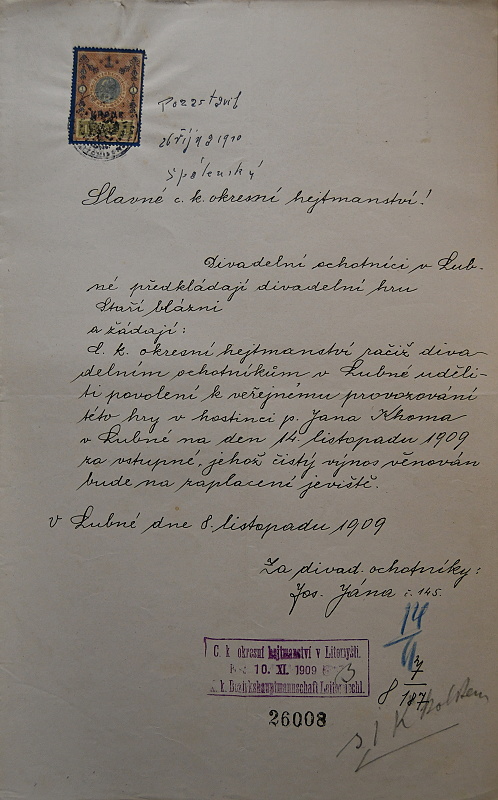 Pozastavil
26 října 1910
Slavné c. k. okresní hejtmanství!
Divadelní ochotníci v Lub-
né předkládají divadelní hru
Staří blázni
a žádají:
C. k. okresní hejtmanství račiž diva-
delním ochotníkům v Lubné uděli-
ti povolení k veřejnému provozování
této hry v hostinci p. Jana Khoma
v Lubné na den 14. listopadu 1909
za vstupné, jehož čistý výnos věnován
bude na zaplacení jeviště.
V Lubné dne 8. listopadu 1909
Za divad. ochotníky:
Jos. Jána č. 145.
14
11
C. k. okresní hejtmanství v Litomyšli.
10. XI. 1909
K. k. Bezirkshauptmannschaft Leitomischl.
8
187
26008